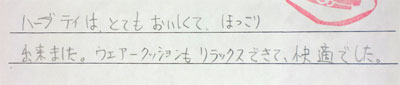 ハーブティは、とてもおいしくて、ほっこり
出来ました。ウェアークッションもリラックスできて、快適でした。